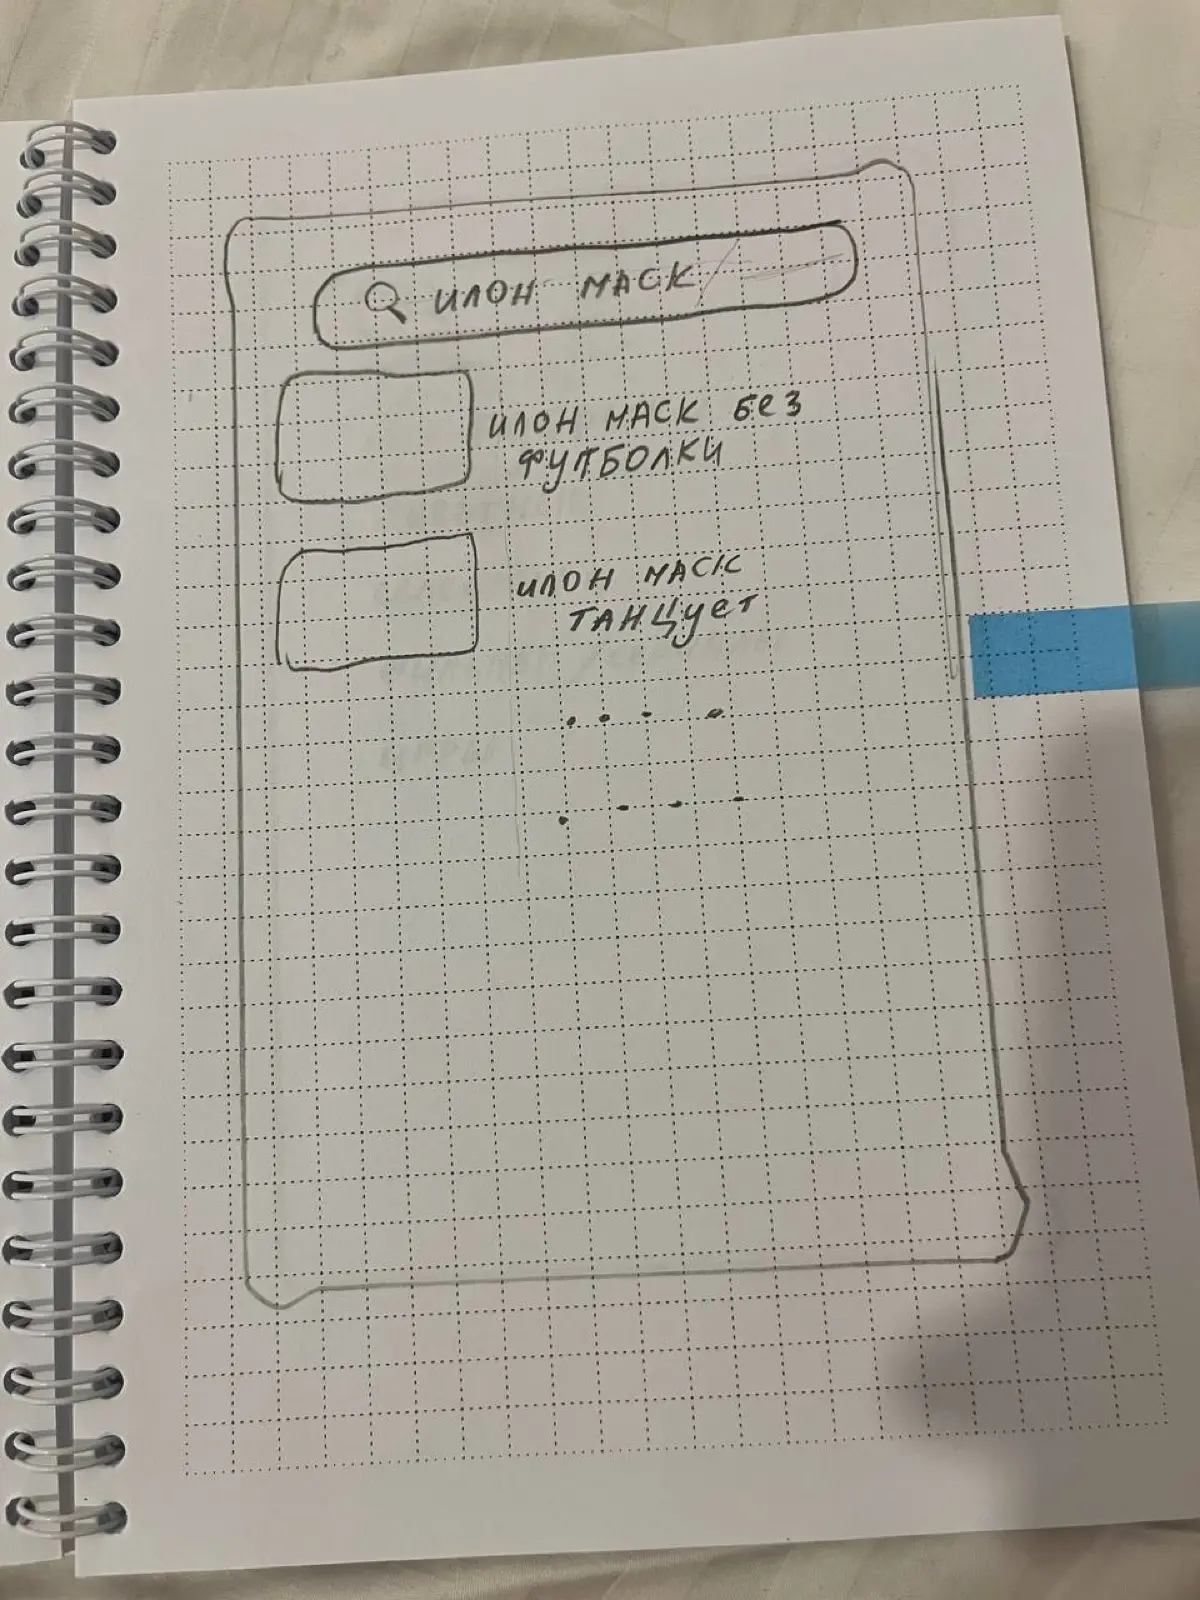 ИЛОН МАСК
ИЛОН МАСК БЕЗ
ФУТБОЛКИ
ИЛОН МАСК
ТАНЦУЕТ